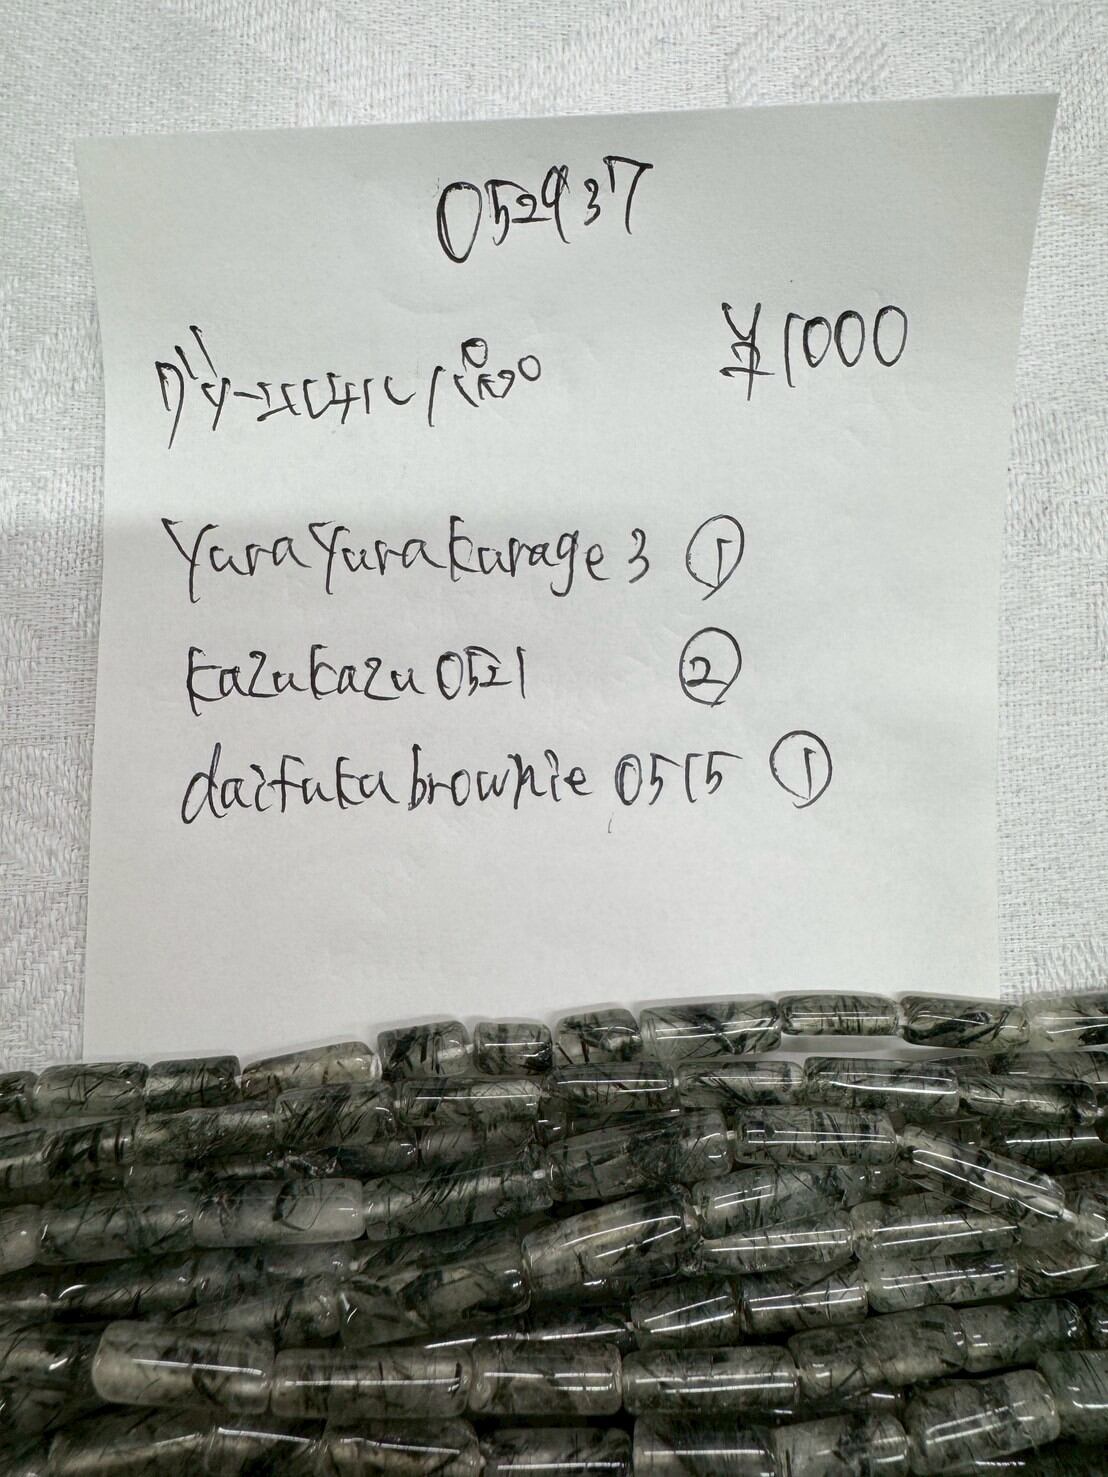 052937
グリーンルチル ¥1000
yurayurakurage3 ①
kazukazu0521 ②
daifukubrownie0515 ①